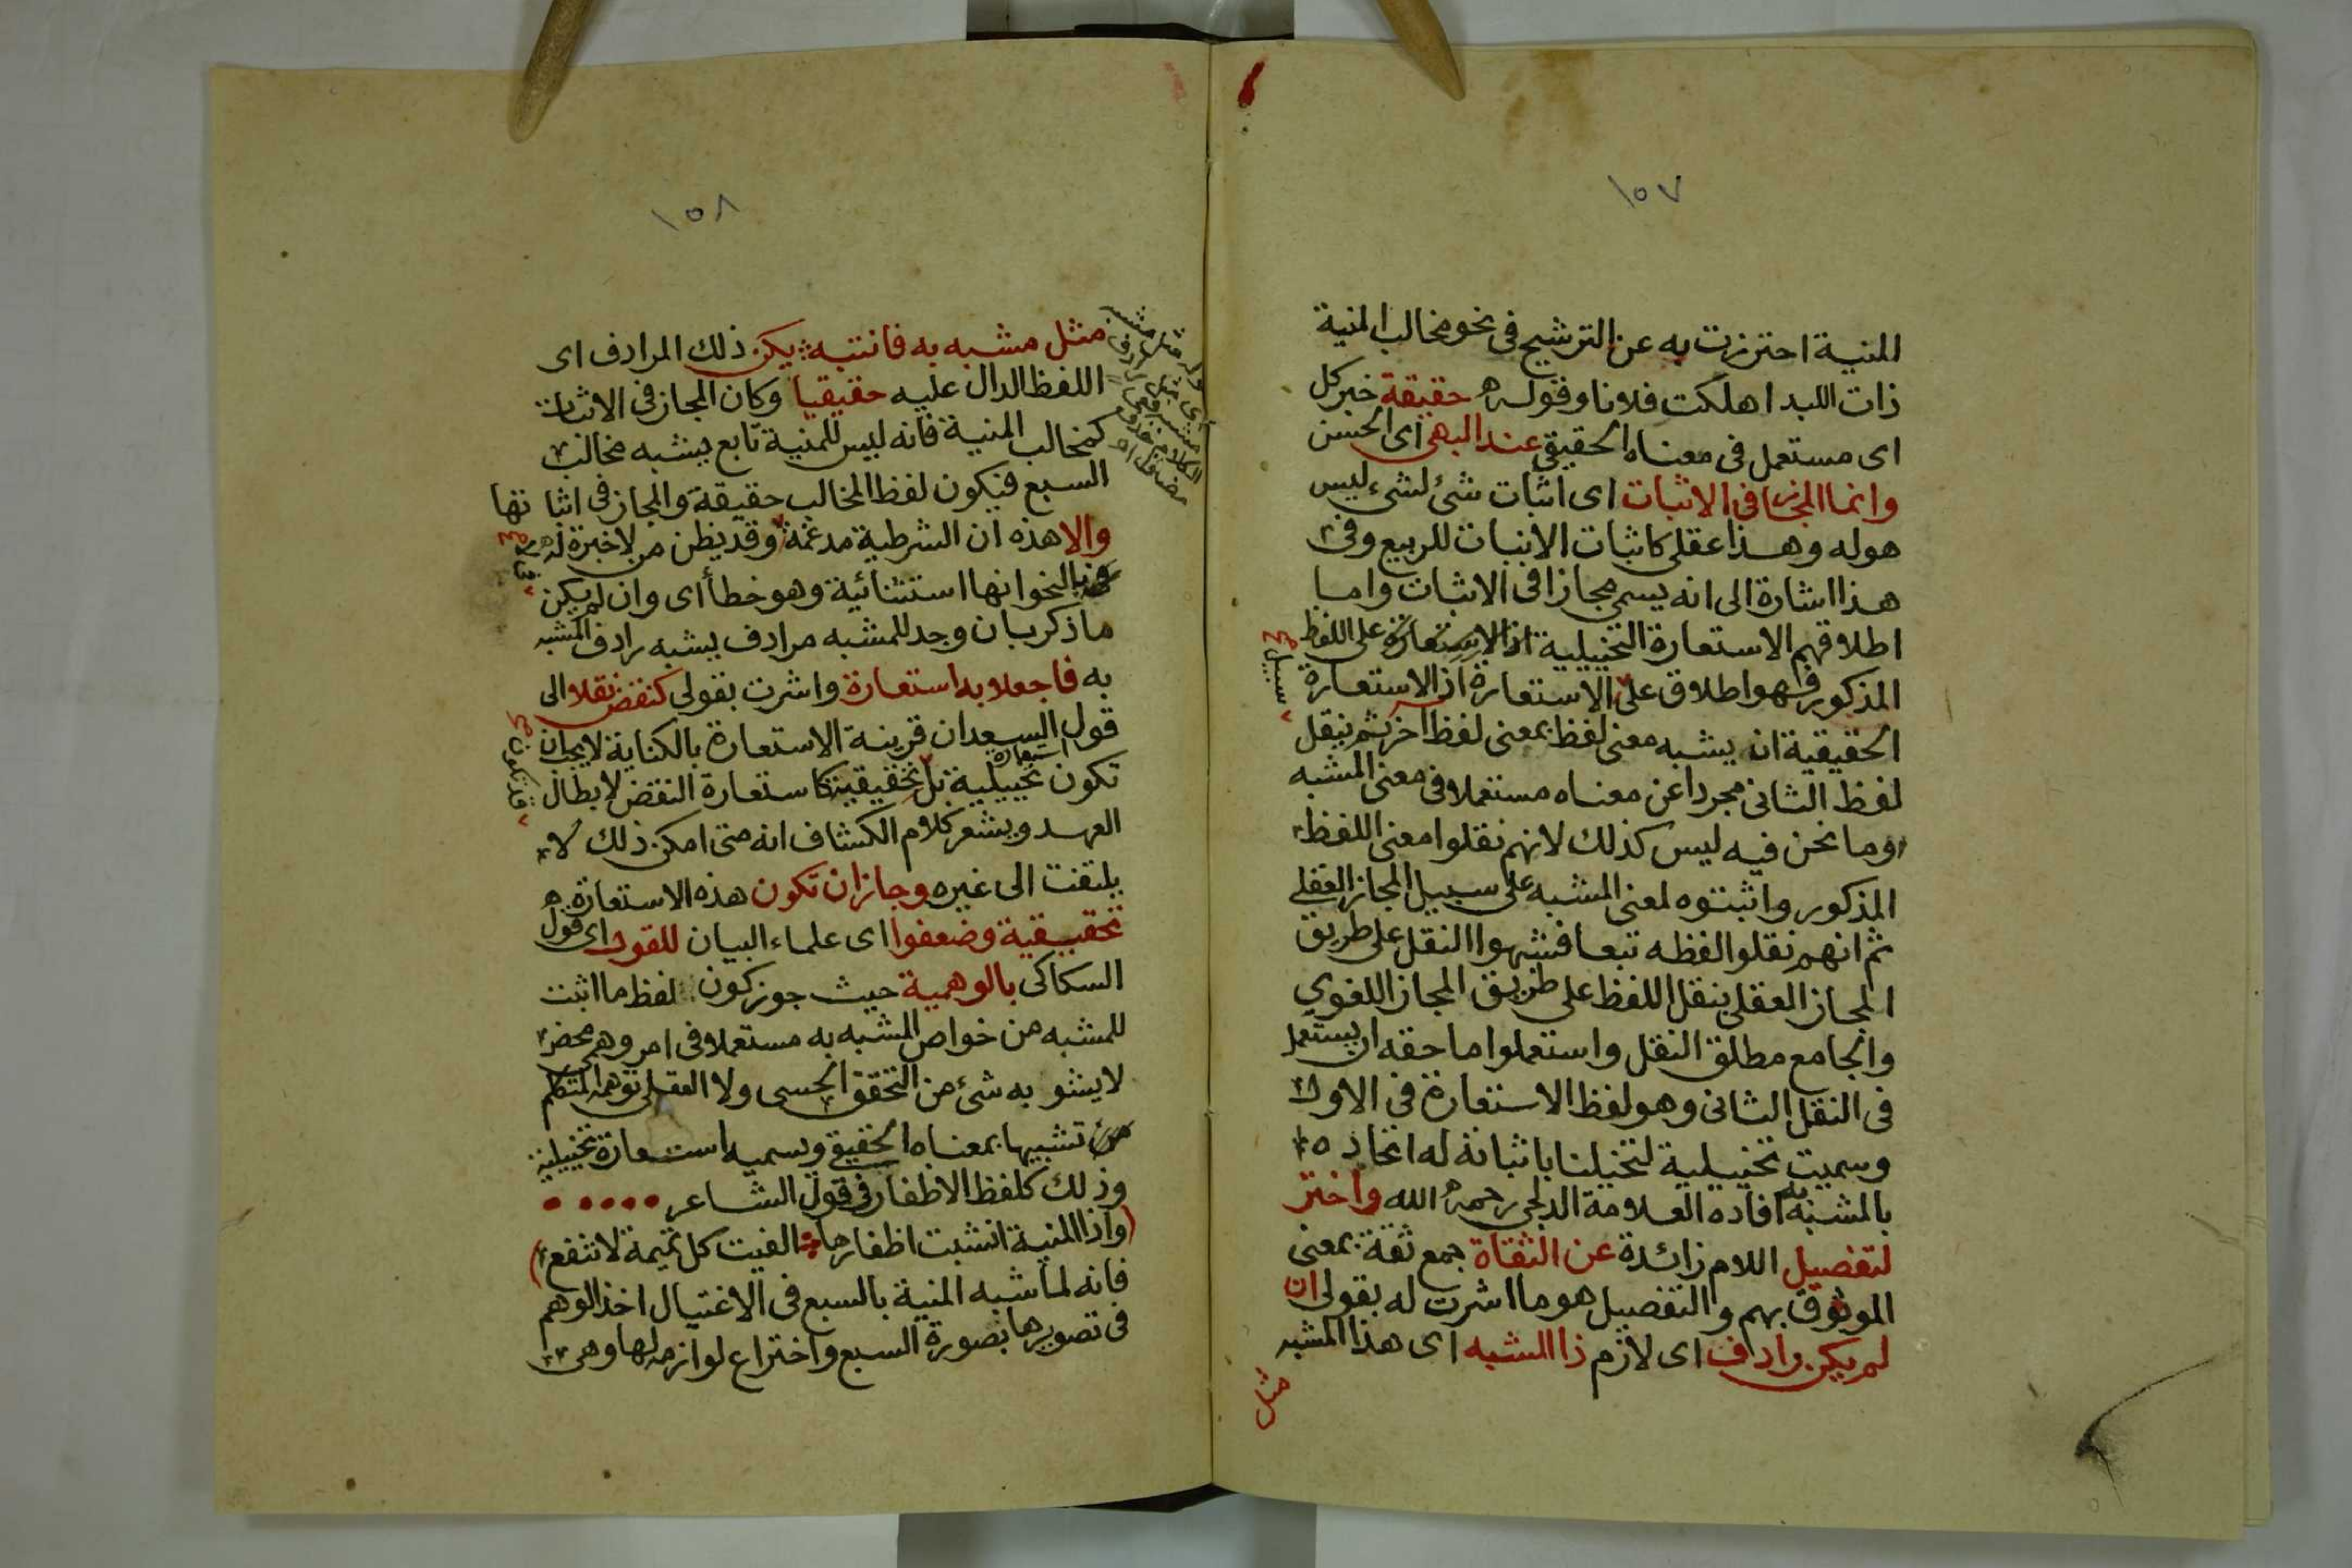 ١٥٧
المنية احترزت به عن الترشيح فى نحو مخالب المنية
ذات اللبد اهلكت فلانا وقوله حقيقة خبر كل
اى مستعمل فى معناه الحقيقي عند البهى اى الحسن
وانما المجاز فى الاثبات اى اثبات شئ لشئ ليس
هو له وهذا عقلى كاثبات الانبات للربيع وفى
هذا اشارة الى انه يسمى مجازا فى الاثبات واما
اطلاقهم الاستعارة التخييلية على اللفظ
المذكور فهو اطلاق على الاستعارة اذ الاستعارة
سبيل صح
الحقيقية ان يشبه معنى لفظ بمعنى لفظ اخر ثم ينقل
لفظ الثانى مجردا عن معناه مستعملا فى معنى المشبه
وما نحن فيه ليس كذلك لانهم نقلوا معنى اللفظ
المذكور واثبتوه لمعنى المشبه على سبيل المجاز العقلى
ثم انهم نقلوا لفظه تبعا فشبهوا النقل على طريق
المجاز العقلى بنقل اللفظ على طريق المجاز اللغوي
والجامع مطلق النقل واستعملوا ما حقه ان يستعمل
فى النقل الثانى وهو لفظ الاستعارة فى الاول
وسميت تخييلية لتخيلنا باثباته له اتحاده
بالمشبه به افاده العلامة الدلجى رحمه الله واختر
لتفصيل اللام زائدة عن الثقاة جمع ثقة بمعنى
الموثوق بهم والتفصيل هو ما اشرت له بقولى ان
لم يكن رادف اى لازم ذا المشبه اى هذا المشبه
مثل
١٥٨
مثل مشبه به فانتبه يكن ذلك المرادف اى
اللفظ الدال عليه حقيقيا وكان المجاز فى الاثبات
كمخالب المنية فانه ليس للمنية تابع يشبه مخالب
السبع فيكون لفظ المخالب حقيقة والمجاز فى اثباتها
والا هذه ان الشرطية مدغمة وقد يظن من لاخبرة له
بالنحو انها استثنائية وهو خطأ اى وان لم يكن
ما ذكر بان وجد للمشبه مرادف يشبه رادف المشبه
به فاجعلا به استعارة واشرت بقولى كنقض نقلا الى
قول السعد ان قرينة الاستعارة بالكناية لا يجب ان
تكون استعارة تخييلية بل تحقيقية كاستعارة النقض لابطال
قد تكون صح
العهد ويشعر كلام الكشاف انه متى امكن ذلك لا
يلتفت الى غيره وجاز ان تكون هذه الاستعارة
تحقيقية وضعفوا اى علماء البيان للقول اى قول
السكاكى بالوهمية حيث جوز كون لفظ ما اثبت
للمشبه من خواص المشبه به مستعملا فى امر وهمى محض
لا يشوبه شئ من التحقق الحسى ولا العقلى توهمه المتكلم
تشبيها بمعناه الحقيقي ويسميه استعارة تخييلية
وذلك كلفظ الاظفار فى قول الشاعر
(واذا المنية انشبت اظفارها الفيت كل تميمة لا تنفع)
فانه لما شبه المنية بالسبع فى الاغتيال اخذ الوهم
فى تصويرها بصورة السبع واختراع لوازمه لها وهى